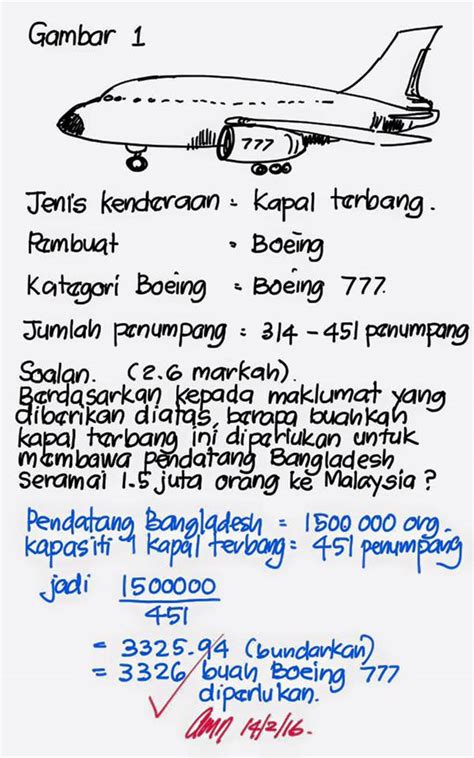 Gambar 1
777
Jenis kenderaan = Kapal terbang.
Pembuat = Boeing
Kategori Boeing = Boeing 777.
Jumlah penumpang = 314 - 451 penumpang
Soalan. (2.6 markah).
Berdasarkan kepada maklumat yang
diberikan diatas, berapa buahkah
kapal terbang ini diperlukan untuk
membawa pendatang Bangladesh
seramai 1.5 juta orang ke Malaysia?
Pendatang Bangladesh = 1500 000 org.
kapasiti 1 kapal terbang = 451 penumpang
jadi 1500000
451
= 3325.94 (bundarkan)
= 3326 buah Boeing 777
diperlukan.
14/2/16.